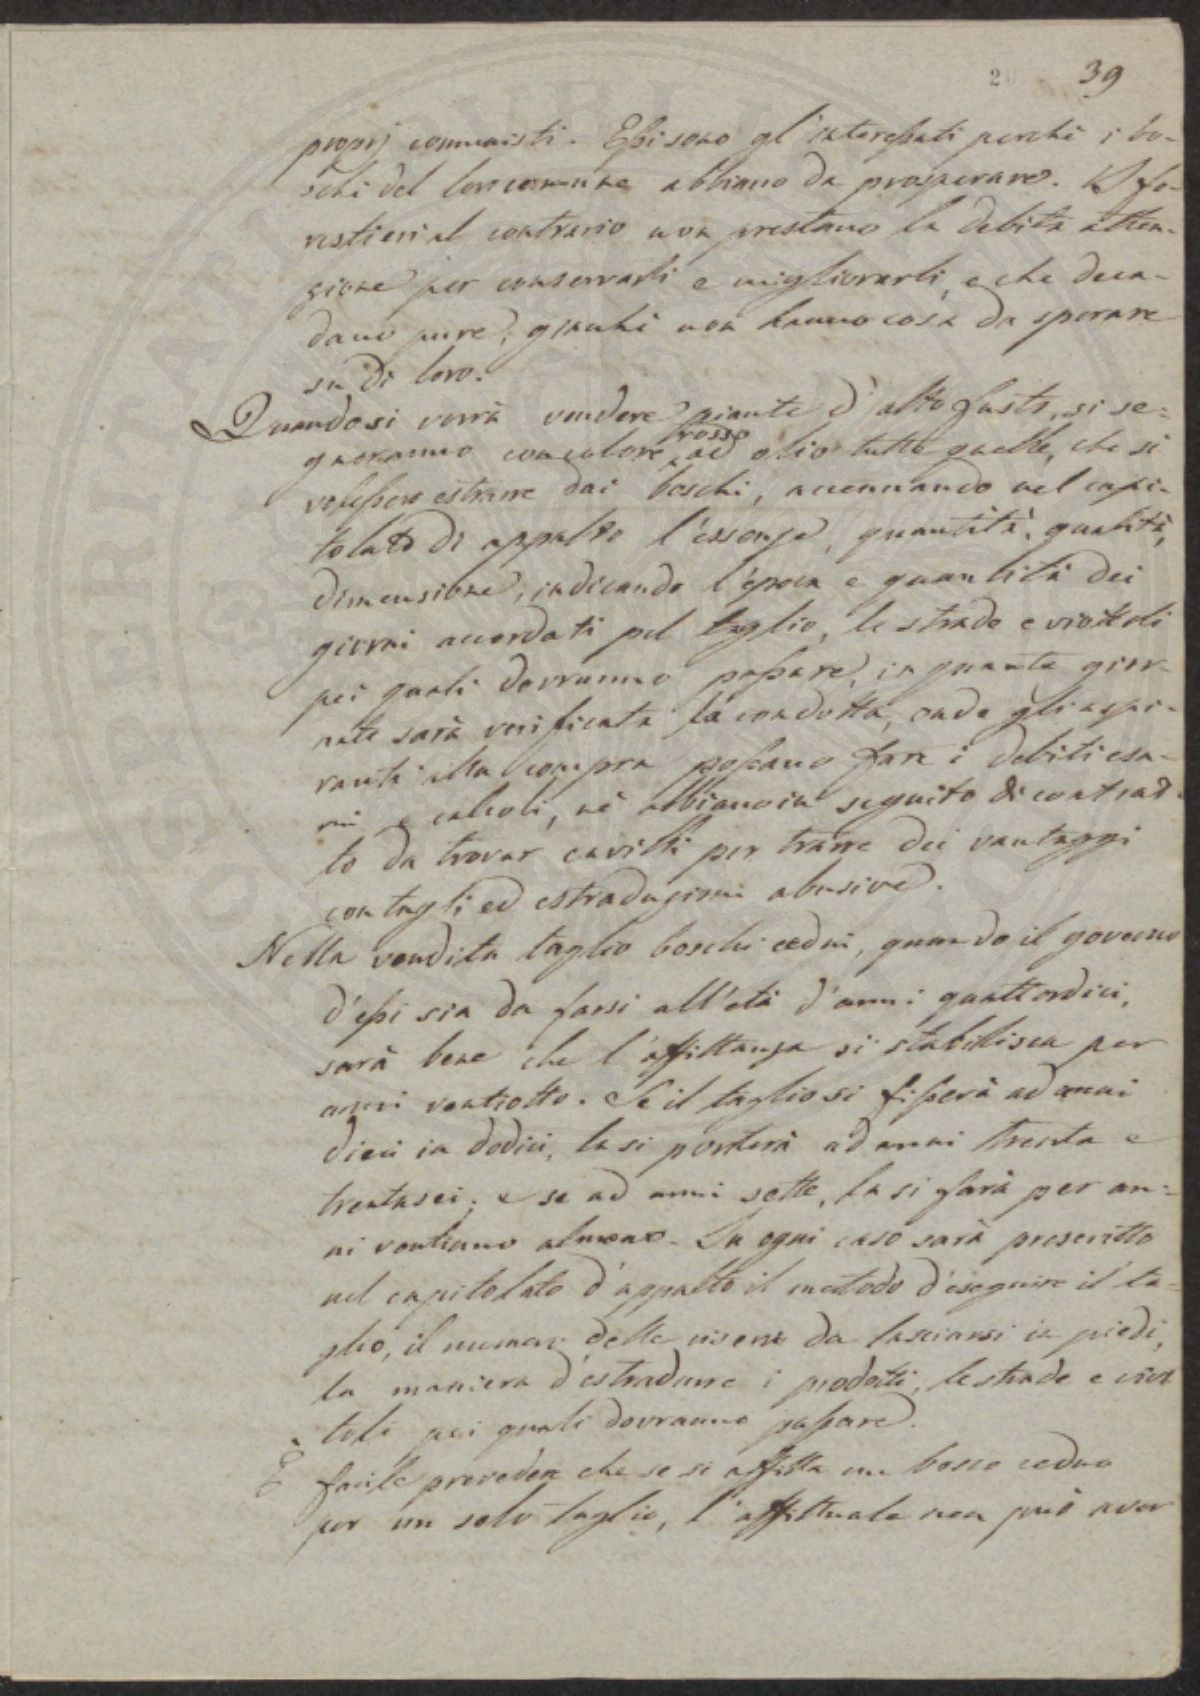 20 39
proprj communisti. Essi sono gl'interessati perchè i bo-
schi del loro comune abbiano da prosperare. I fo-
restieri al contrario non prestano la debita atten-
zione per conservarli e migliorarli, e che deca-
dano pure, giacchè non hanno cosa da sperare
su di loro.
Quando si vorrà vendere piante d'alto fusto, si se-
gneranno con colore rosso ad olio tutte quelle, che si
volessero estrarre dai boschi, accennando nel capi-
tolato di appalto l'essenze, quantità, qualità,
dimensione, indicando l'epoca e quantità dei
giorni accordati pel taglio, le strade e viottoli
pei quali dovranno passare, in quante gior-
nate sarà verificata la condotta, onde gli aspi-
ranti alla compra possano fare i debiti esa-
mi e calcoli, nè abbiano in seguito di contrat-
to da trovar cavilli per trarre dei vantaggi
con tagli ed estraduzioni abusive.
Nella vendita taglio boschi cedui, quando il governo
d'essi sia da farsi all'età d'anni quattordici,
sarà bene che l'affittanza si stabilisca per
anni ventiotto. Se il taglio si fisserà ad anni
dieci in dodici, la si porterà ad anni trenta e
trentasei; e se ad anni sette, la si farà per an-
ni ventiuno almeno. In ogni caso sarà prescritto
nel capitolato d'appalto il metodo d'eseguire il ta-
glio, il numero delle riserve da lasciarsi in piedi,
la maniera d'estradurre i prodotti, le strade e viot
toli pei quali dovranno passare.
È facile prevedere che se si affitta un bosco ceduo
per un solo taglio, l'affittuale non può aver